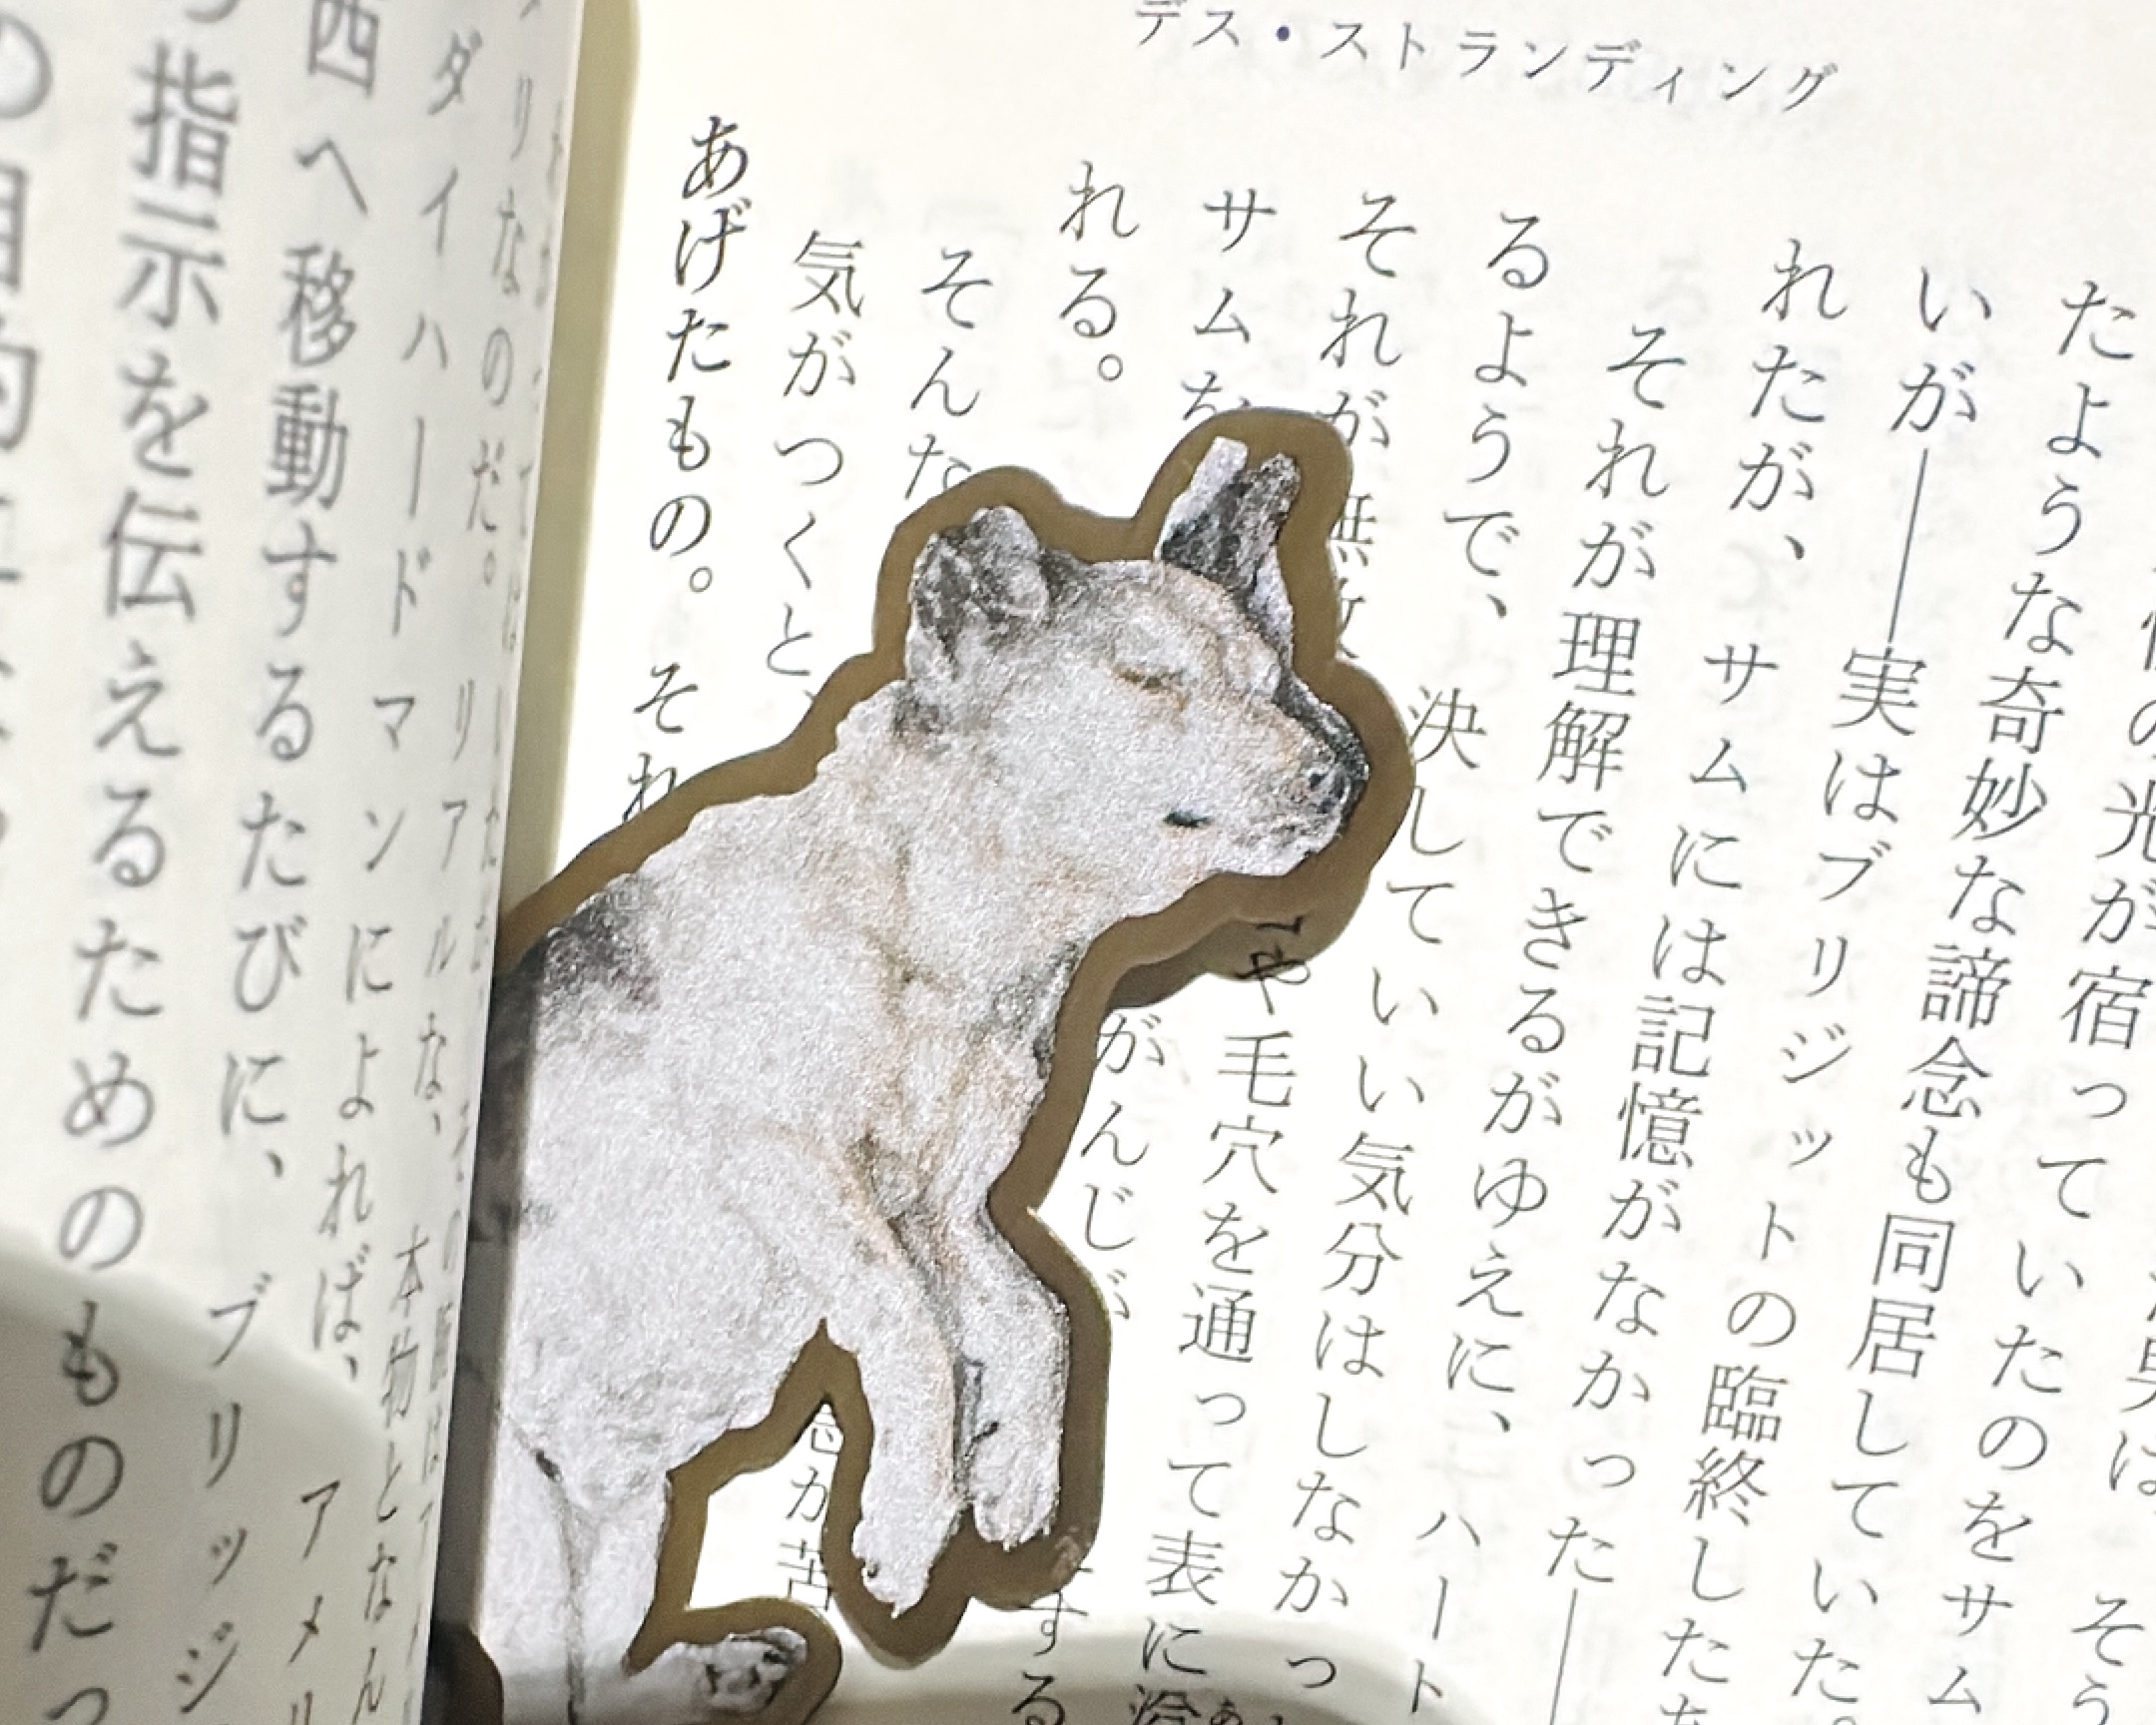 デス・ストランディング
男は　そう
の光が宿っていたのをサム
たような奇妙な諦念も同居していた。
いが――実はブリジットの臨終したち
れたが、サムには記憶がなかった――
それが理解できるがゆえに、ハート
るようで、決していい気分はしなかっ
それが無数 や毛穴を通って表に溢
サムを がんじが する
れる。
そんな 念が苦
気がつくと、
あげたもの。それ
リなのだ。リアルな、本物となん
ダイハードマンによれば、アメリ
西へ移動するたびに、ブリッジ
指示を伝えるためのものだっ